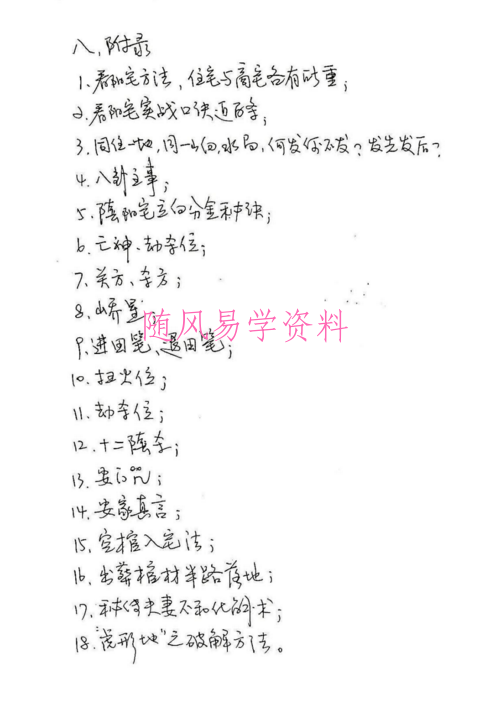 八、附录
1. 看阳宅方法，住宅与商宅各有所重；
2. 看阳宅实战口诀近百条；
3. 同住一地，同一山向，水局，何发何不发？发先发后？
4. 八卦主事；
5. 陰阳宅立向分金秘诀；
6. 亡神、劫杀位；
7. 关方、杀方；
8. 山乔星；
随风易学资料
9. 进田笔、退田笔；
10. 扫火位；
11. 劫杀位；
12. 十二陰杀；
13. 安 咒；
14. 安家真言；
15. 空棺入宅法；
16. 出葬棺材半路落地；
17. 秘传夫妻不和化的术；
18. "虎形地"之破解方法。